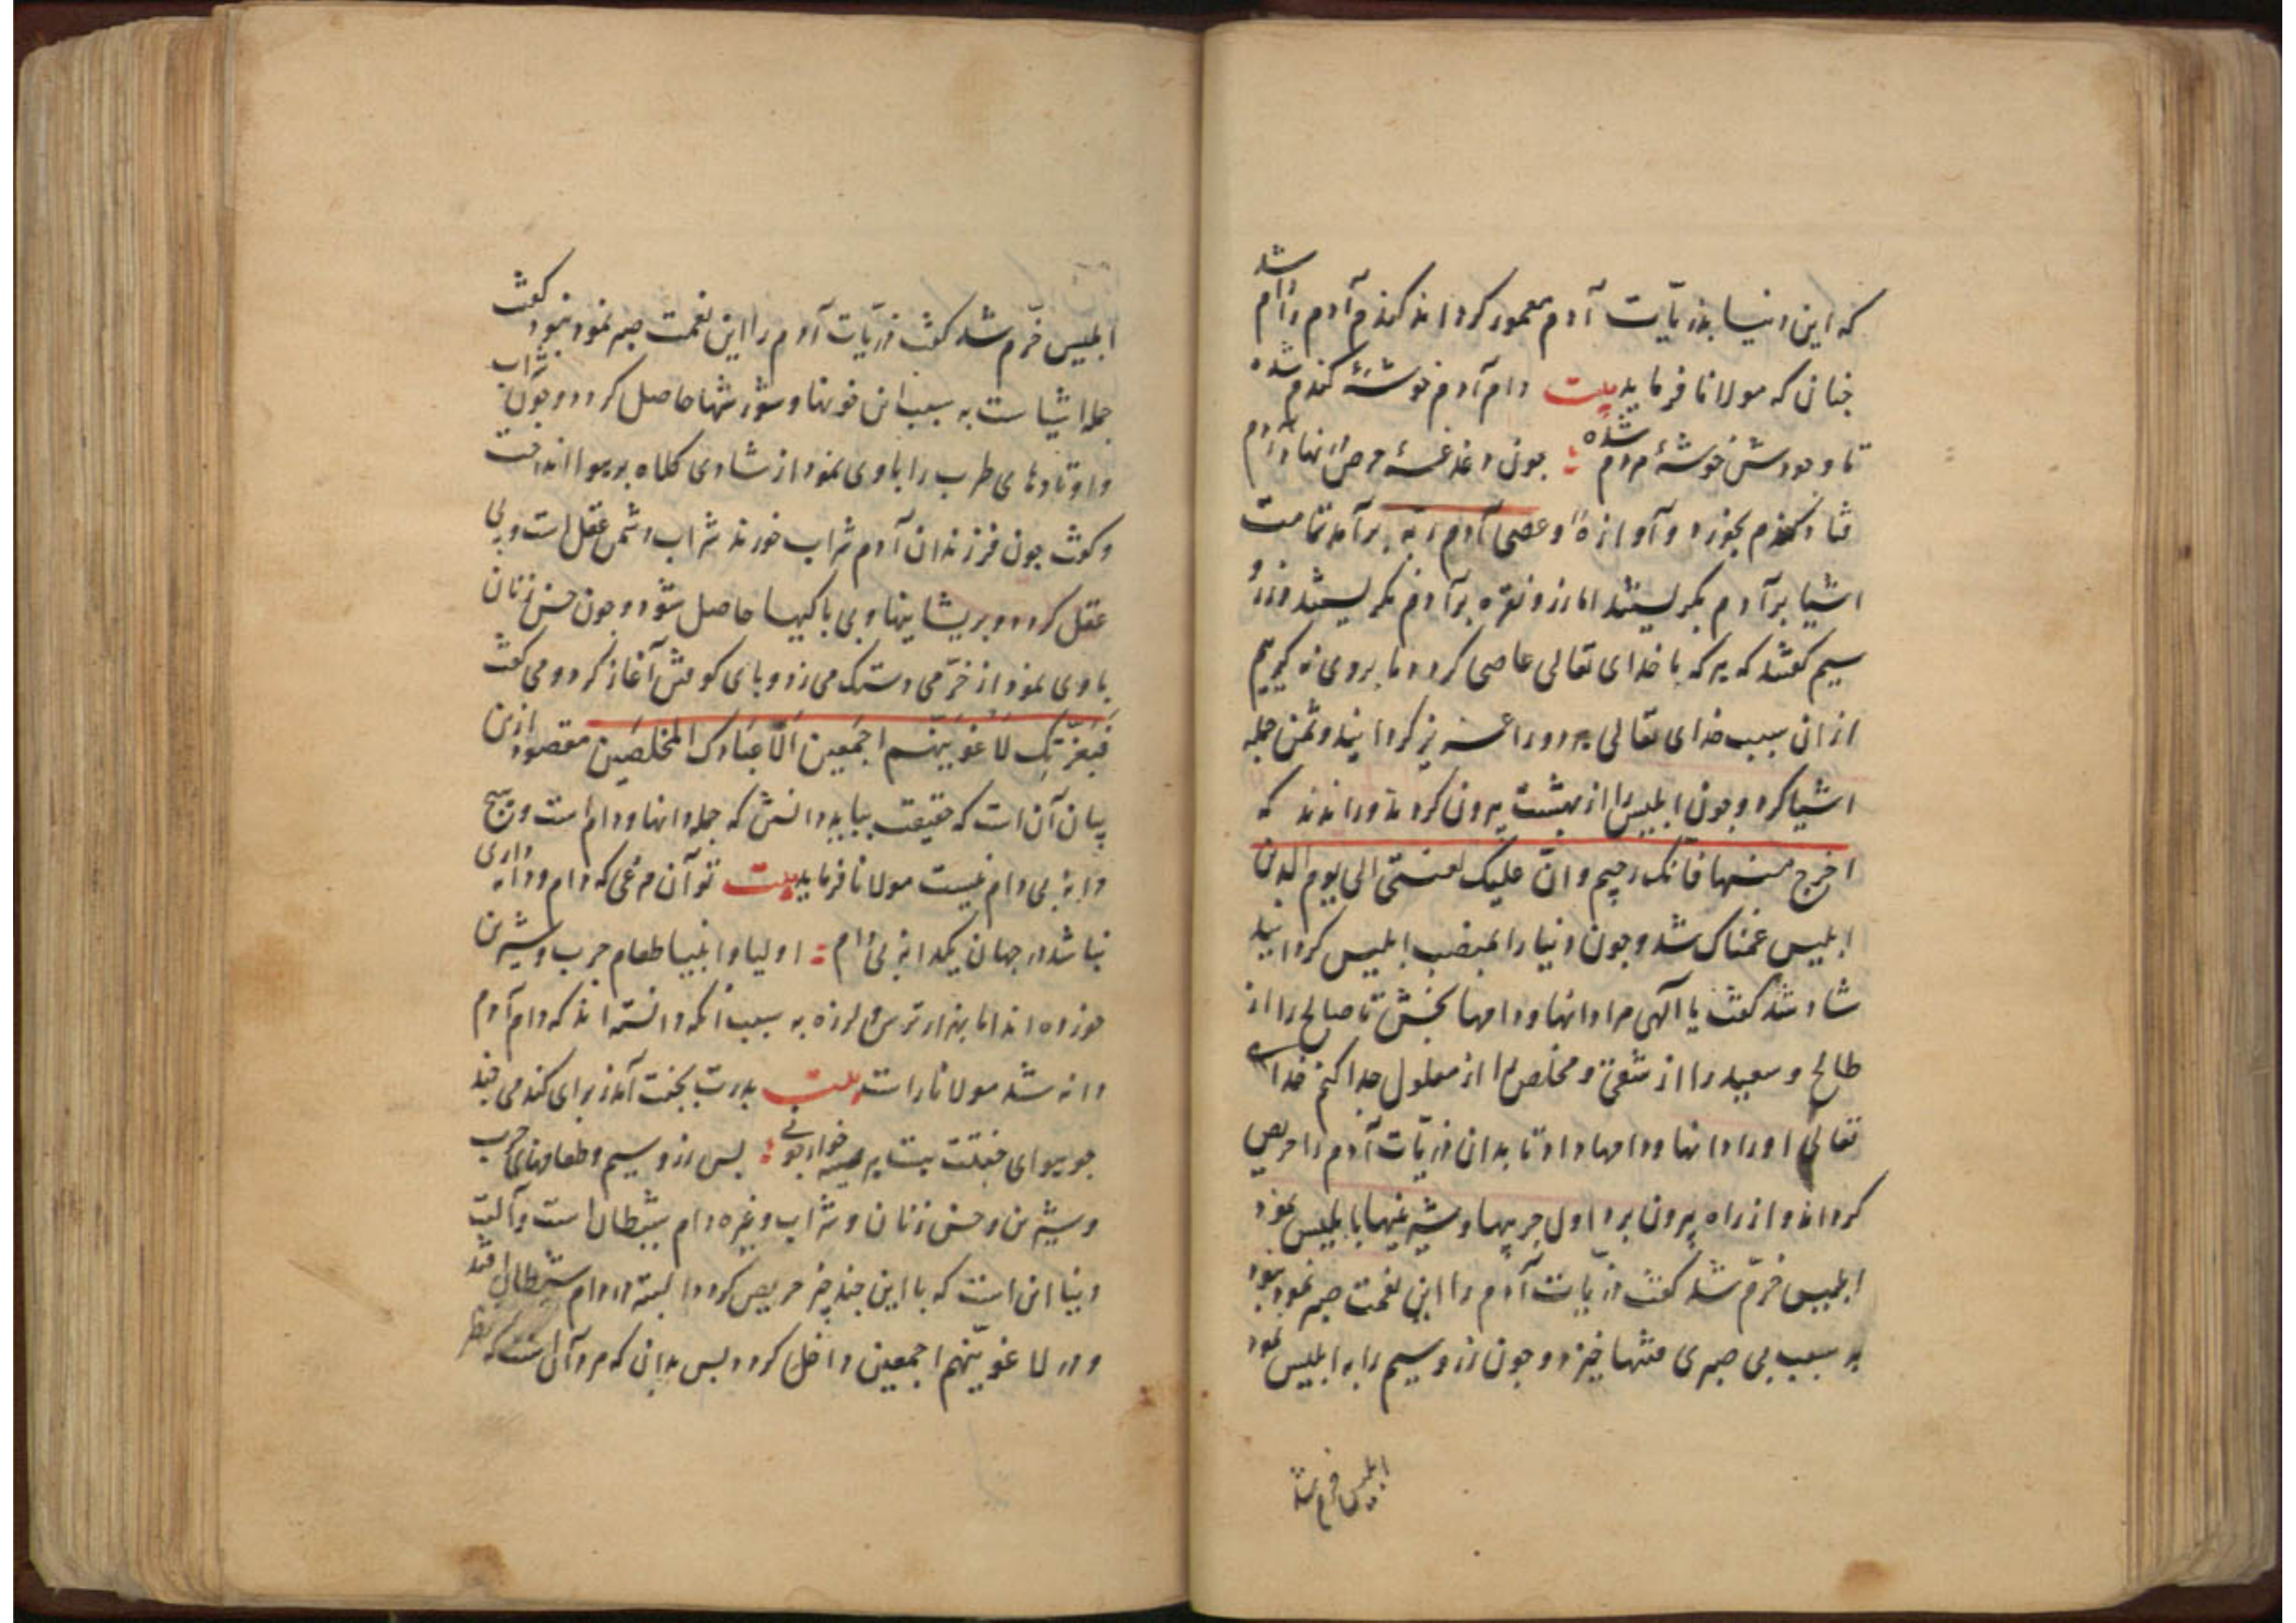 که این دنیا بذریّات آدم معمور کرداند گندم آدم را دام شد
چنانی که مولانا فرماید بیت دام آدم خوشۀ گندم شده
تا وجودش خوشۀ مردم شده چون دغدغۀ حرص در نهاد آدم
فتاد گندم بخورد و آوازۀ و عصی آدم ربّه برآمد تمامت
اشیا بر آدم بگریستند اما زر و نقره بر آدم نگریستند و زر و
سیم گفتند که هر که با خدای تعالی عاصی کردد ما بروی نه گرییم
از ان سبب خدای تعالی هر دو را عزیز کردانید و ثمن جمله
اشیا کرد و چون ابلیس را از بهشت بیرون کردند و راندند که
اخرج منها فانّک رجیم و انّ علیک لعنتی الی یوم الدین
ابلیس غمناک شد و چون دنیا را بمنصب ابلیس کردانید
شاد شد کفت یا الهی مرا دانها و دامها بخش تا صالح را از
طالح و سعید را از شقی و مخلص را از معلول جدا کنم خدای
تعالی او را دانها و دامها داد تا بدان ذریّات آدم را حریص
کرداند و از راه بیرون برد اول چربیها و شیرینیها با ابلیس نمود
ابلیس خرّم شد کفت ذریات آدم را این نعمت صبر نخواهد بود
به سبب بی صبری فتنها خیزد و چون زر و سیم را به ابلیس نمود
ابلیس خرم شد
ابلیس خرّم شد کفت ذریّات آدم را این نعمت صبر نمود نبود کفت
جمله اشیاست به سبب این خونها و شورشها حاصل کردد و چون شراب
و اوتادهای طرب را با وی نمود از شادی کلاه بر هوا انداخت
و کفت چون فرزندان آدم شراب خورند شراب دشمن عقل است و بی
عقل کردد و بریشانیها و بی باکیها حاصل شود و چون حسن زنان
با وی نمود از خرّمی دستک می زد و بای کوفتن آغاز کرد و می کفت
فبعزّتک لاغوینّهم اجمعین الّا عبادک المخلصین مقصود ازین
بیان آن است که حقیقت بباید دانستن که جمله دانها و دام است و هیچ
دانه بی دام نیست مولانا فرماید بیت تو آن مرغی که دام و دانه داری
نباشد در جهان یکدانه بی دام اولیا و انبیا طعام چرب و شیرین
خورده اند اما بهزار ترس و لرزه به سبب انکه دانسته اند که دام آدم
دانه شد مولانا راست بیت بدرت بجنت آمد ز برای گندمی چند
جو هوای جنتت نیست خوار جونی بس زر و سیم و طعامهای چرب
و شیرین و حسن زنان و شراب و غیره دام شیطان است و آلت
دنیا این است که با این چند چیز حریص کردد البته در دام شیطان افتد
و در لاغوینّهم اجمعین داخل کردد بس بدان که مرد آن است که بظر